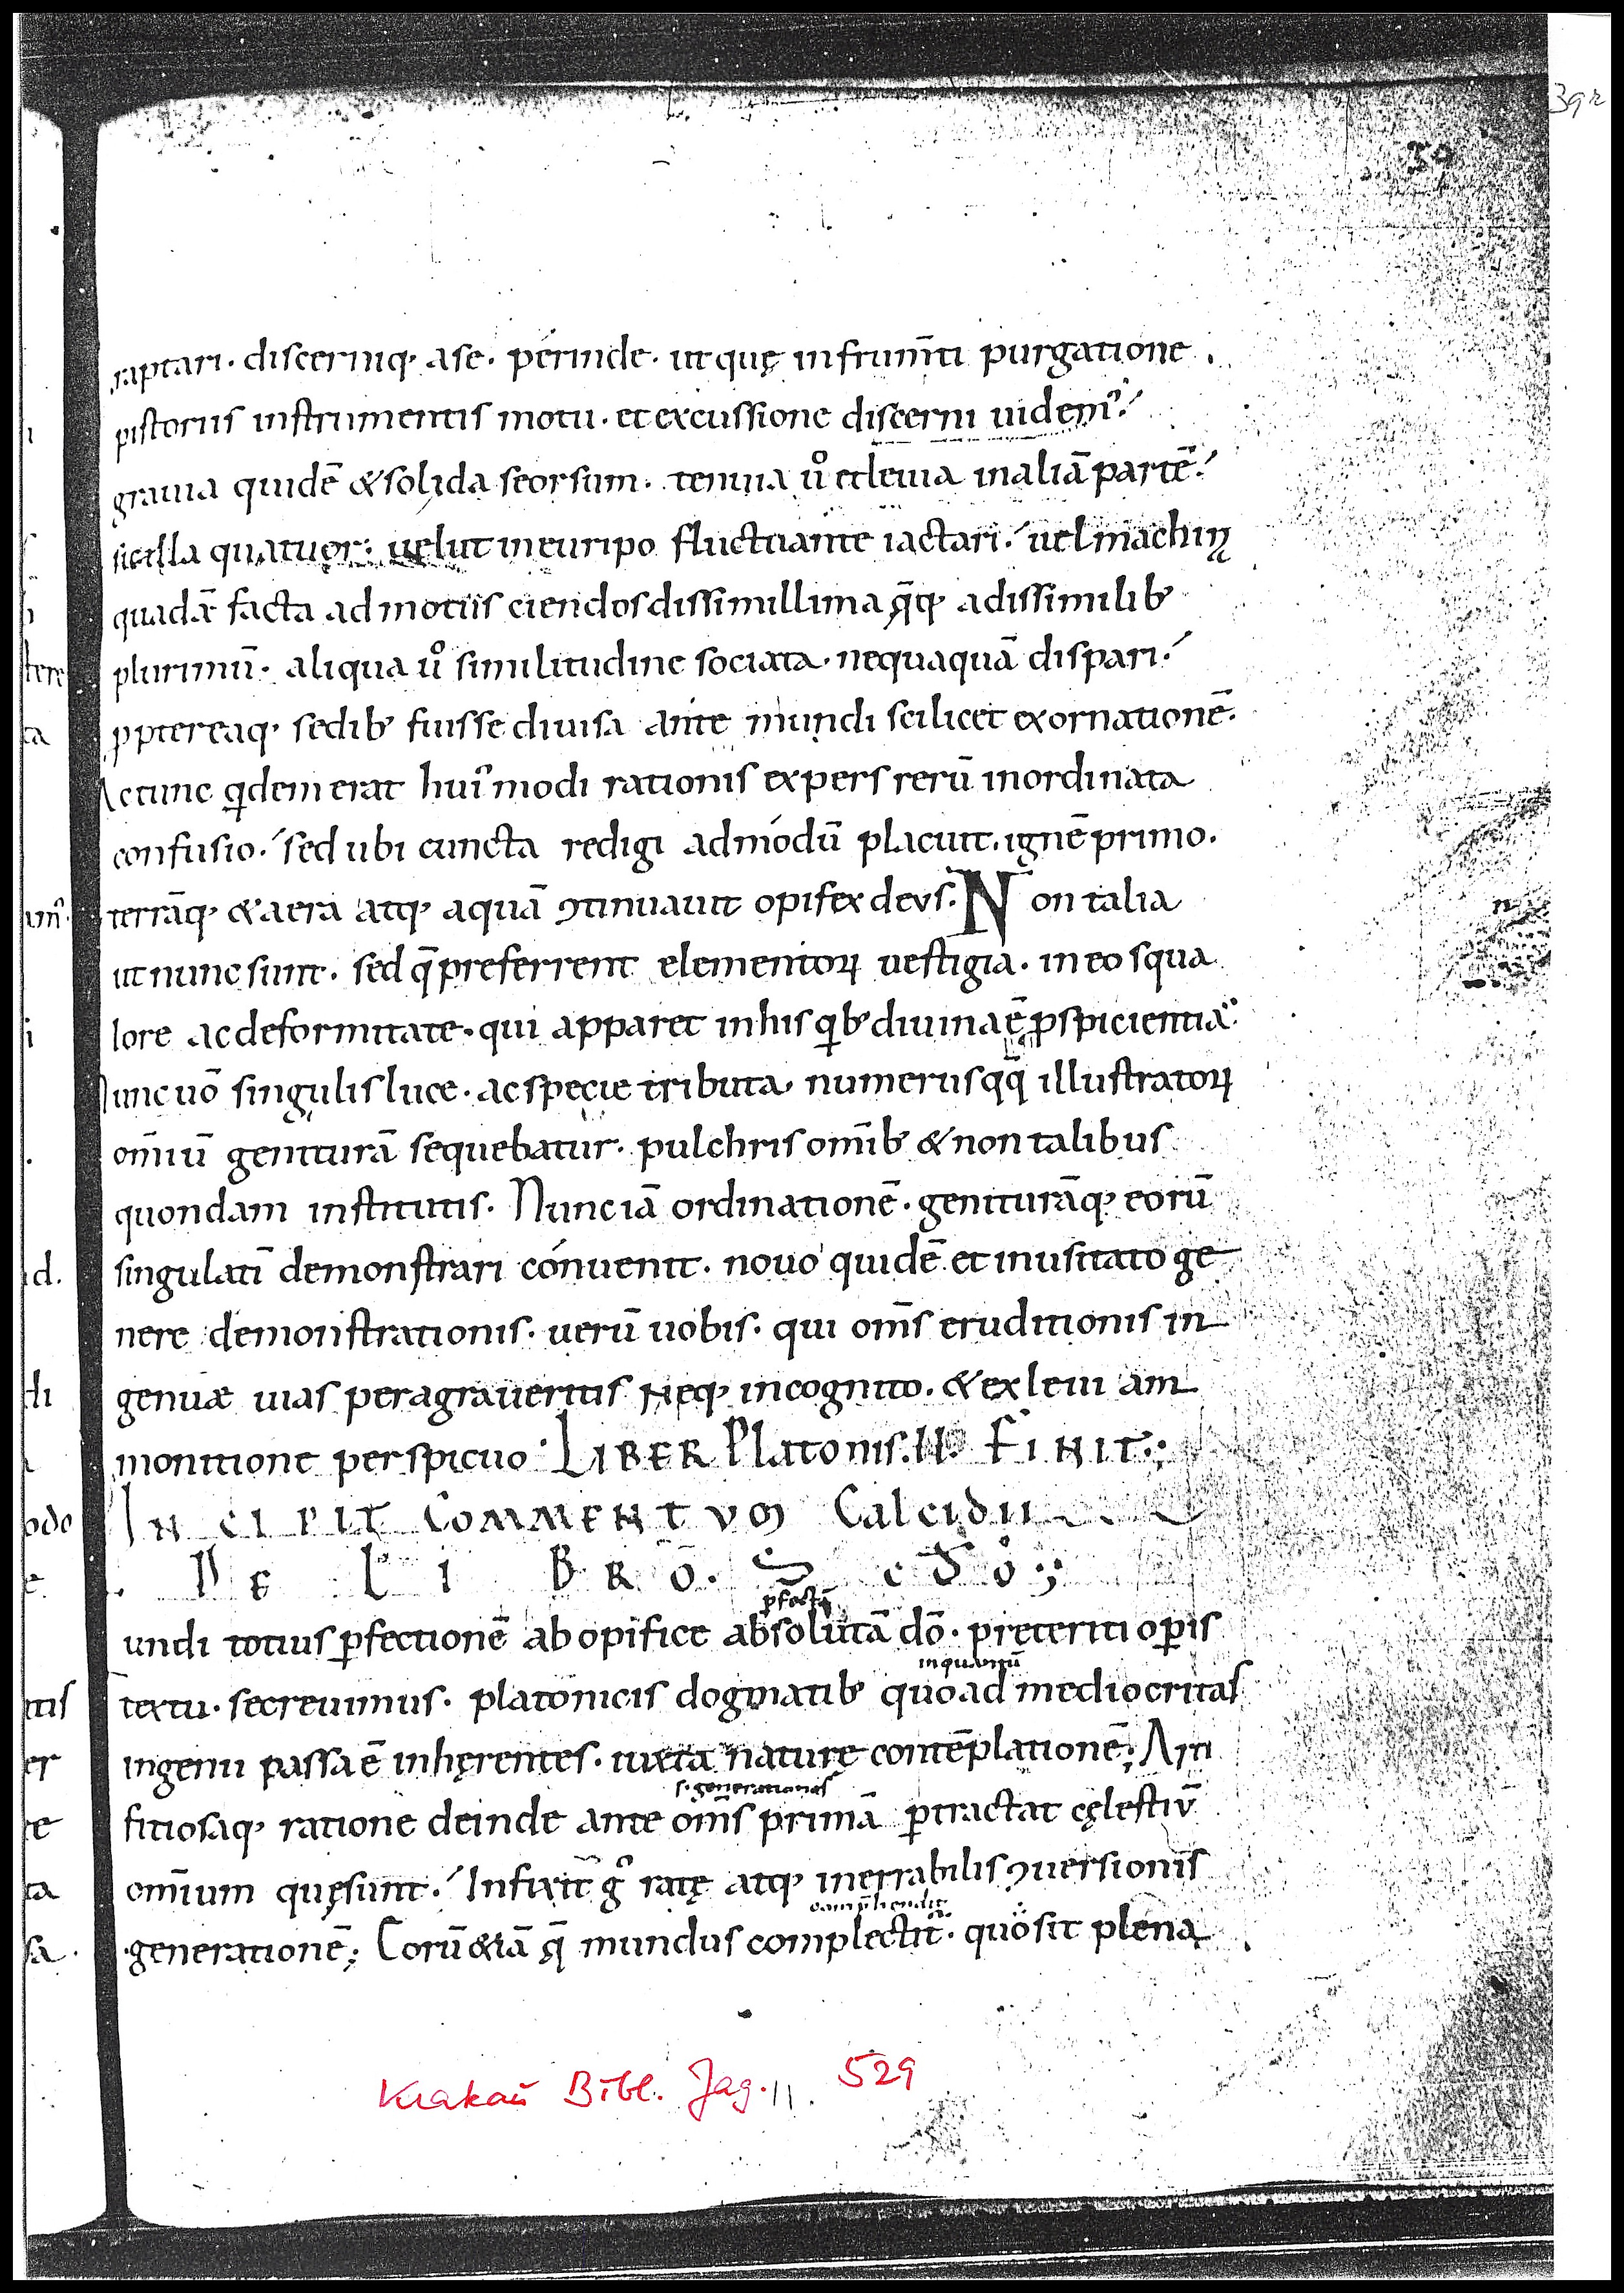 39r
39
raptari. discerniq; ase. perinde. ut quę in frum̄ti purgatione.
pistoriis instrumentis motu. et excussione discerni uidem᷒.
grauia quidē & solida seorsum. tenuia ů et leuia in aliā partē.
sic illa quatuor: uelut in euripo fluctuante iactari. uel machinę
quadā facta ad motus ciendos dissimillima q̄q; a dissimilib;
plurimū. aliqua ů similitudine sociata. nequaquā dispari.
ꝓptereaq; sedib; fuisse diuisa ante mundi scilicet exornationē.
Ac tunc qͥdem erat hui᷒modi rationis expers rerū inordinata
confusio. sed ubi cuncta redigi ad modū placuit. ignē primo.
terrāq; & aera atq; aquā ꝯtinuauit opifex deus. Non talia
ut nunc sunt. sed q̄ preferrent elementoꝝ uestigia. in eo squa
lore ac deformitate. qui apparet in his qͥb; diuina ē ꝑspicientia.
Nunc uō singulis luce. ac specie tributa. numerus qq̄ illustratoꝝ
om̄iū genituram sequebatur. pulchris om̄ib; & non talibus
quondam institutis. Nunc iā ordinationē. geniturāq; eorū
singulatī demonstrari conuenit. nouo quidē et inusitato ge
nere demonstrationis. uerū uobis. qui om̄s eruditionis in
genuæ uias peragraueritis Neq; incognito. & ex leui am
monitione perspicuo. LIBER Platonis. II. FINIT;
INCIPIT COMMENTUM Calcidii
DE LIBRO. Scdō;
undi totius ꝑfectionē ab opifice absolutā dō. preteriti oꝑis
inquantū
textu. secreuimus. platonicis dogmatib; quoad mediocritas
ingenii passa ē inhęrentes. iuxta naturę contēplationē; Arti
s. generationes
fitiosaq; ratione deinde ante om̄s primā ꝑtractat cęlestiū
om̄ium quę sunt. Infixit gͦ ratę atq; inerrabilis ꝯuersionis
comp̄hendit
generationē; Corū & iā q̄ mundus complectit᷑. quo sit plena
Krakau Bibl. Jag. 529